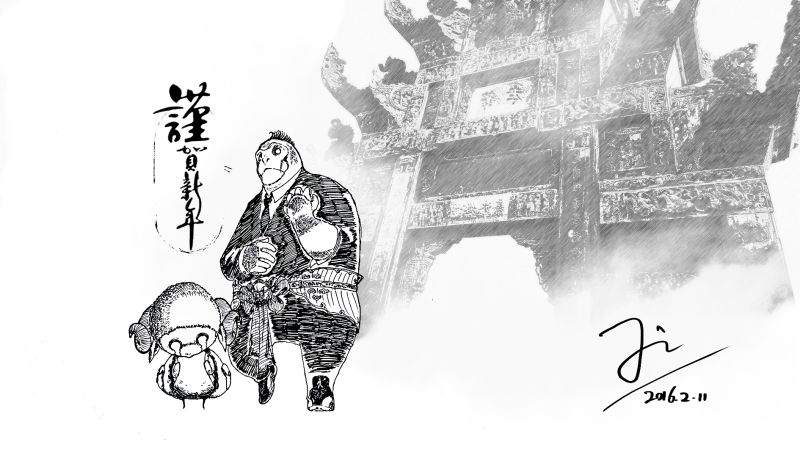 謹賀新年
Ji
2016.2.11